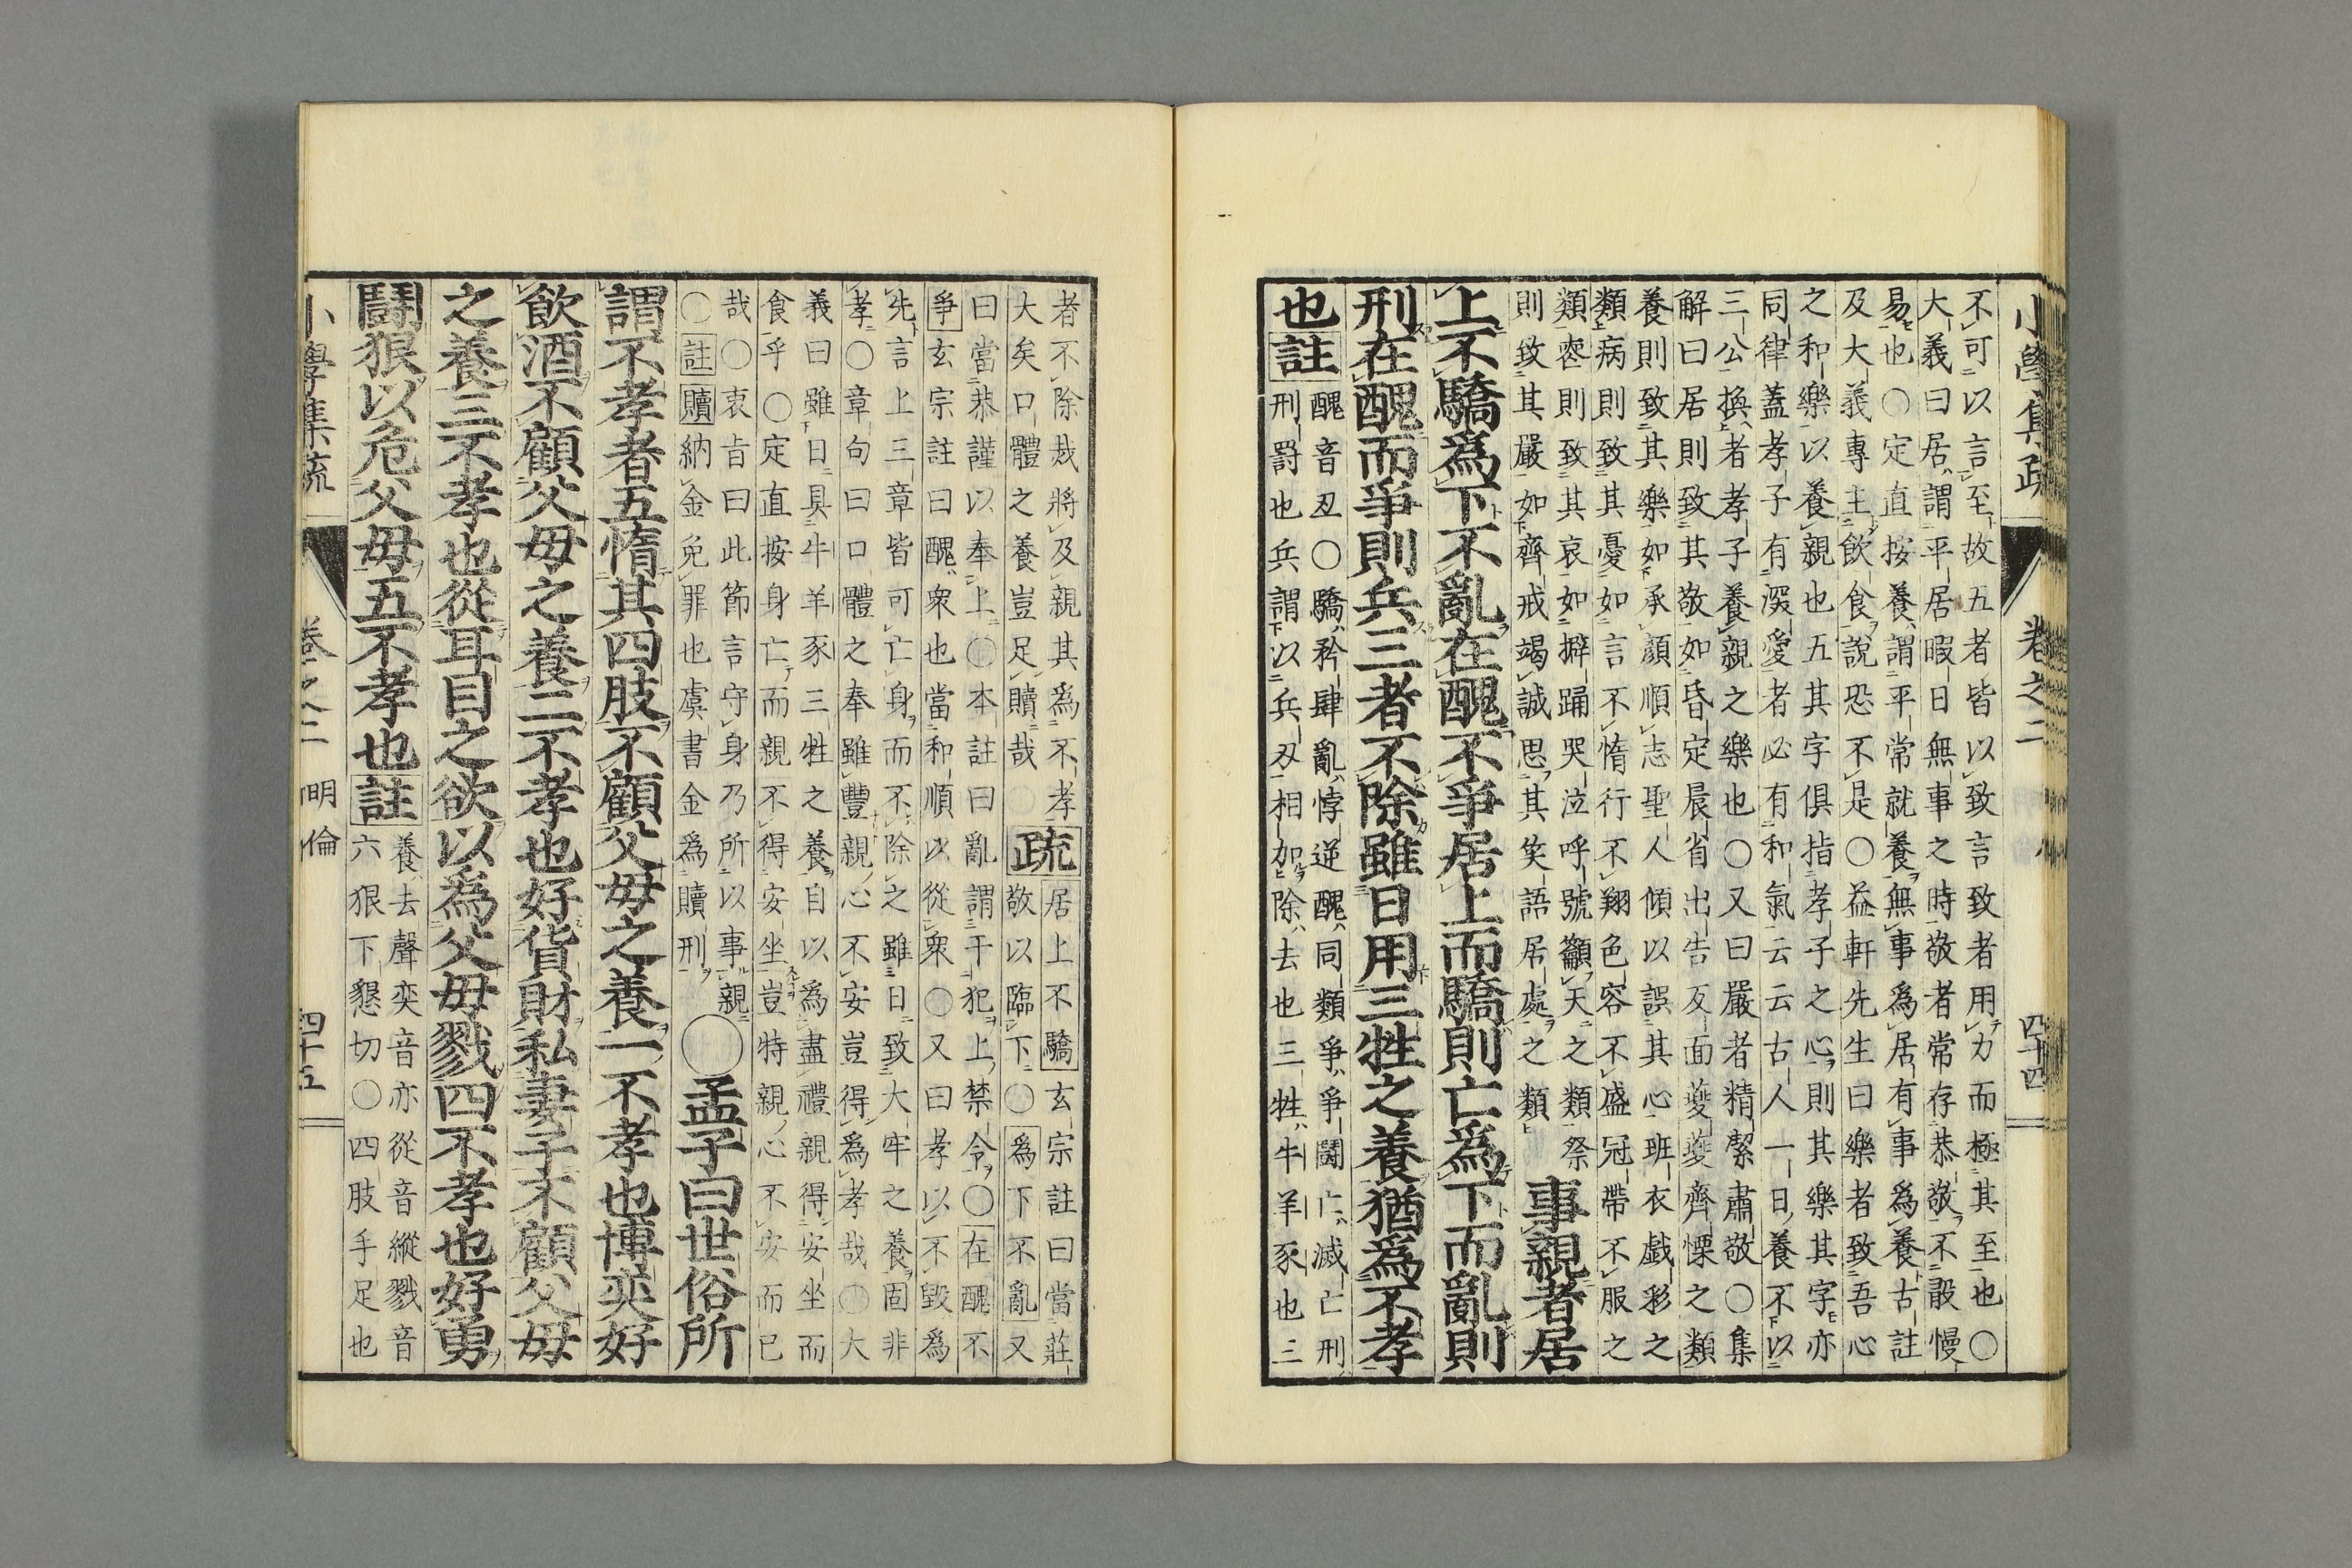 小學集疏 卷之二 四十四
不可以言至故五者皆以致言致者用力而極其至也〇
大義曰居謂平居暇日無事之時敬者常存恭敬不敢慢
易也〇定直按養謂平常就養無事為居有事為養古註
及大義專主飲食說恐不是〇益軒先生曰樂者致吾心
之和樂以養親也五其字俱指孝子之心則其樂其字亦
同律蓋孝子有深愛者必有和氣云云古人一日養不以
三公換者孝子養親之樂也〇又曰嚴者精潔肅敬〇集
解曰居則致其敬如昏定晨省出告反面夔夔齊慄之類
養則致其樂如承顏順志聖人傾以誤其心班衣戲彩之
類病則致其憂如言不惰行不翔色容不盛冠帶不服之
類喪則致其哀如擗踊哭泣呼號籲天之類祭
則致其嚴如齊戒竭誠思其笑語居處之類
事親者居
上不驕爲下不亂在醜不爭居上而驕則亡爲下而亂則
刑在醜而爭則兵三者不除雖日用三牲之養猶爲不孝
也註
醜音丑〇驕矜肆亂悖逆醜同類爭爭鬪亡滅亡刑
刑罰也兵謂以兵刃相加除去也三牲牛羊豕也三
者不除烖將及親其為不孝
大矣口體之養豈足贖哉
疏
居上不驕玄宗註曰當莊
敬以臨下〇為下不亂又
曰當恭謹以奉上〇本註曰亂謂干犯上禁令〇在醜不
爭玄宗註曰醜衆也當和順以從衆〇又曰孝以不毀為
先言上三章皆可亡身而不除之雖日致大牢之養固非
孝〇章句曰口體之奉雖豐親心不安豈得為孝哉〇大
義曰雖日具牛羊豕三牲之養自以為盡禮親得安坐而
食乎〇定直按身亡而親不得安坐豈特親心不安而已
哉〇衷旨曰此節言守身乃所以事親
〇註贖納金免罪也虞書金為贖刑
〇孟子曰世俗所
謂不孝者五惰其四肢不顧父母之養一不孝也博奕好
飲酒不顧父母之養二不孝也好貨財私妻子不顧父母
之養三不孝也從耳目之欲以爲父母戮四不孝也好勇
鬪狠以危父母五不孝也註
養去聲奕音亦從音縱戮音
六狠下懇切〇四肢手足也
小學集疏 卷之二 明倫 四十五